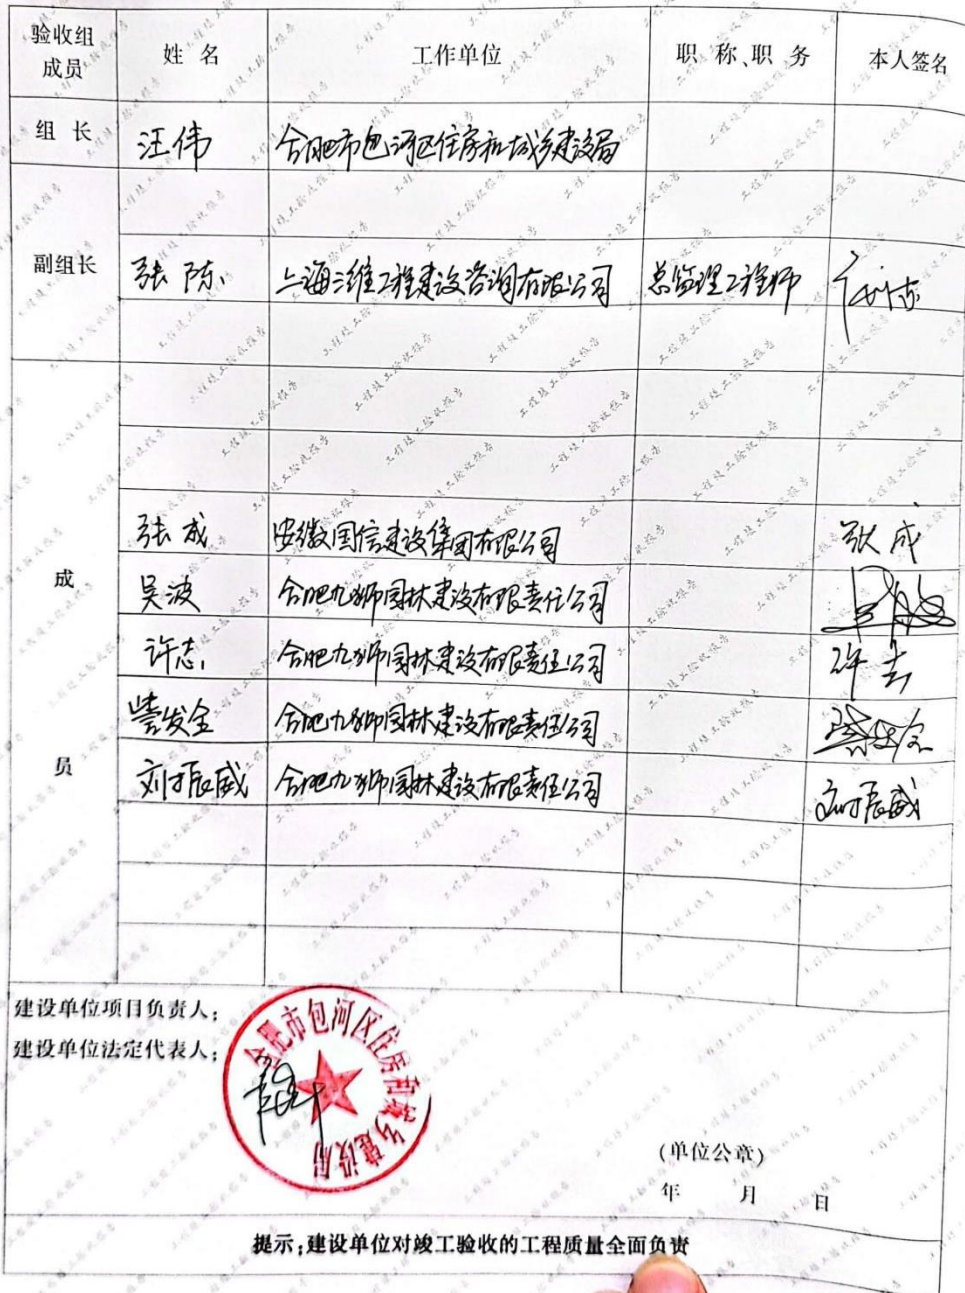 验收组
成员
姓 名
工作单位
职 称、职 务
本人签名
组 长
汪伟
合肥市包河区住房和城乡建设局
副组长
张陈
上海三维工程建设咨询有限公司
总监理工程师
成
员
张成
安徽国信建设集团有限公司
张成
吴波
合肥九狮园林建设有限责任公司
许志
合肥九狮园林建设有限责任公司
许志
发全
合肥九狮园林建设有限责任公司
刘振威
合肥九狮园林建设有限责任公司
刘振威
建设单位项目负责人:
建设单位法定代表人:
合肥市包河区住房和城乡建设局
(单位公章)
年 月 日
提示:建设单位对竣工验收的工程质量全面负责
工程竣工验收报告